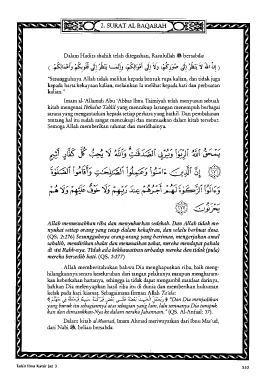 2. SURAT AL BAQARAH
Dalam Hadits shahih telah ditegaskan, Rasulullah ﷺ bersabda:
(( إِنَّ اللهَ لَا يَنْظُرُ إِلَى صُوَرِكُمْ، وَلَا إِلَى أَمْوَالِكُمْ، وَلَكِنْ يَنْظُرُ إِلَى قُلُوْبِكُمْ وَأَعْمَالِكُمْ. ))
"Sesungguhnya Allah tidak melihat kepada bentuk rupa kalian, dan tidak juga
kepada harta kekayaan kalian, melainkan Ia melihat kepada hati dan perbuatan
kalian."
Imam al-'Allamah Abu 'Abbas Ibnu Taimiyah telah menyusun sebuah
kitab mengenai
yang mencakup larangan menempuh berbagai
sarana yang mengantarkan kepada setiap perkara yang bathil. Dan pembahasan
tentang hal itu sudah sangat mencukupi dan memuaskan dalam kitab tersebut.
Semoga Allah memberikan rahmat dan meridhainya.
يَمْحَقُ اللَّهُ الرِّبَوٰا وَيُرْبِى الصَّدَقَٰتِ وَاللَّهُ لَا يُحِبُّ كُلَّ كَفَّارٍ أَثِيمٍ
إِنَّ الَّذِينَ ءَامَنُوا وَعَمِلُوا الصَّٰلِحَٰتِ وَأَقَامُوا الصَّلَوٰةَ
وَءَاتَوُا الزَّكَوٰةَ لَهُمْ أَجْرُهُمْ عِندَ رَبِّهِمْ وَلَا خَوْفٌ عَلَيْهِمْ وَلَا هُمْ
يَحْزَنُونَ
Allah memusnahkan riba dan menyuburkan sedekah. Dan Allah tidak me-
nyukai setiap orang yang tetap dalam kekafiran, dan selalu berbuat dosa.
(QS. 2:276) Sesungguhnya orang-orang yang beriman, mengerjakan amal
shalih, mendirikan shalat dan menunaikan zakat, mereka mendapat pahala
di sisi Rabb-nya. Tidak ada kekhawatiran terhadap mereka dan tidak (pula)
mereka bersedih hati. (QS. 2:277)
Allah memberitahukan bahwa Dia menghapuskan riba, baik meng-
hilangkannya secara keseluruhan dari tangan pelakunya maupun mengharam-
kan keberkahan hartanya, sehingga ia tidak dapat mengambil manfaat darinya,
bahkan Dia melenyapkan hasil riba itu di dunia dan memberikan hukuman
kelak pada hari kiamat. Sebagaimana firman Allah Ta'ala:
"Dan Dia menjadikan
yang buruk itu sebagiannya di atas sebagian yang lain, lalu semuanya Dia tumpuk-
kan dan dimasukkan-Nya ke dalam neraka Jahannam." (QS. Al-Anfaal: 37).
Dalam kitab al-Musnad, Imam Ahmad meriwayatkan dari Ibnu Mas'ud,
dari Nabi ﷺ, beliau bersabda:
Tafsir Ibnu Katsir Juz 3